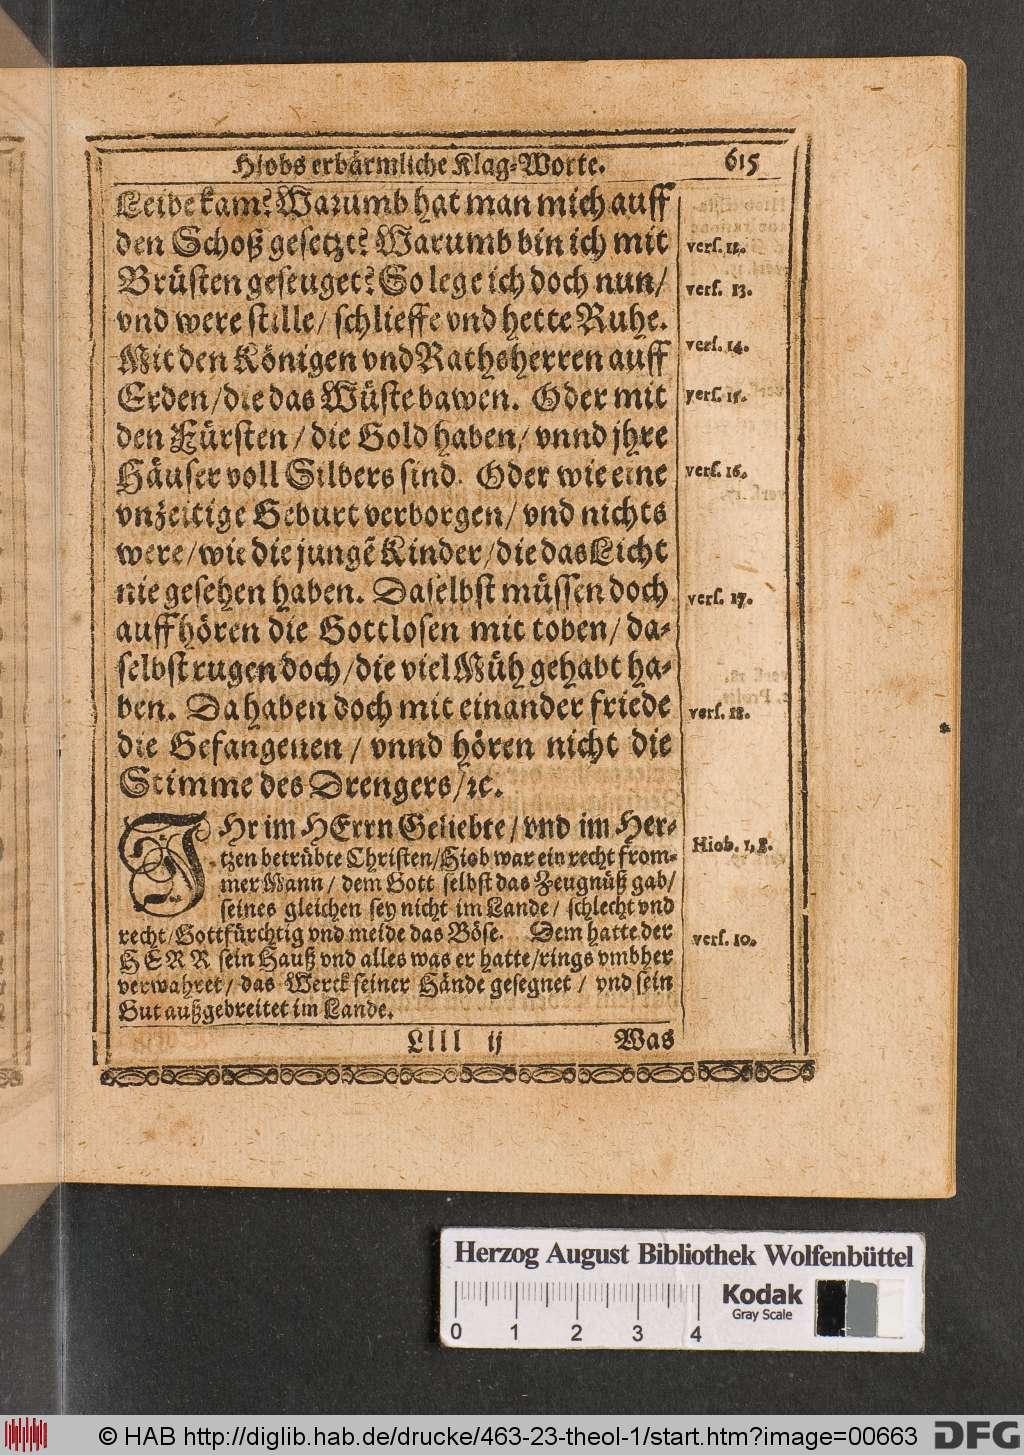 Hiobs erbärmliche Klag-Worte. 615
Leibe kam? Warumb hat man mich auff
den Schoß gesetzt? Warumb bin ich mit
vers. 12.
Brüsten geseuget? So lege ich doch nun/
vers. 13.
vnd were stille/ schlieffe vnd hette Ruhe.
Mit den Königen vnd Rathsherren auff
vers. 14.
Erden/ die das Wüste bawen. Oder mit
vers. 15.
den Fürsten / die Gold haben/ vnnd jhre
Häuser voll Silbers sind. Oder wie eine
vers. 16.
vnzeitige Geburt verborgen/ vnd nichts
were/ wie die jungẽ Kinder/ die das Licht
nie gesehen haben. Daselbst müssen doch
vers. 17.
auffhören die Gottlosen mit toben/ da-
selbst rugen doch/ die viel Müh gehabt ha-
ben. Da haben doch mit einander friede
vers. 18.
die Gefangenen / vnnd hören nicht die
Stimme des Drengers/ ꝛc.
IHr im HErrn Geliebte/ vnd im Her-
tzen betrübte Christen/ Hiob war ein recht from-
Hiob. 1, 8.
mer Mann / dem Gott selbst das Zeugnüß gab/
seines gleichen sey nicht im Lande / schlecht vnd
recht/ Gottfürchtig vnd meide das Böse. Dem hatte der
vers. 10.
HERR sein Hauß vnd alles was er hatte/ rings vmbher
verwahret / das Werck seiner Hände gesegnet / vnd sein
Gut außgebreitet im Lande.
Llll ij Was
Herzog August Bibliothek Wolfenbüttel
0 1 2 3 4
Kodak
Gray Scale
© HAB http://diglib.hab.de/drucke/463-23-theol-1/start.htm?image=00663
DFG